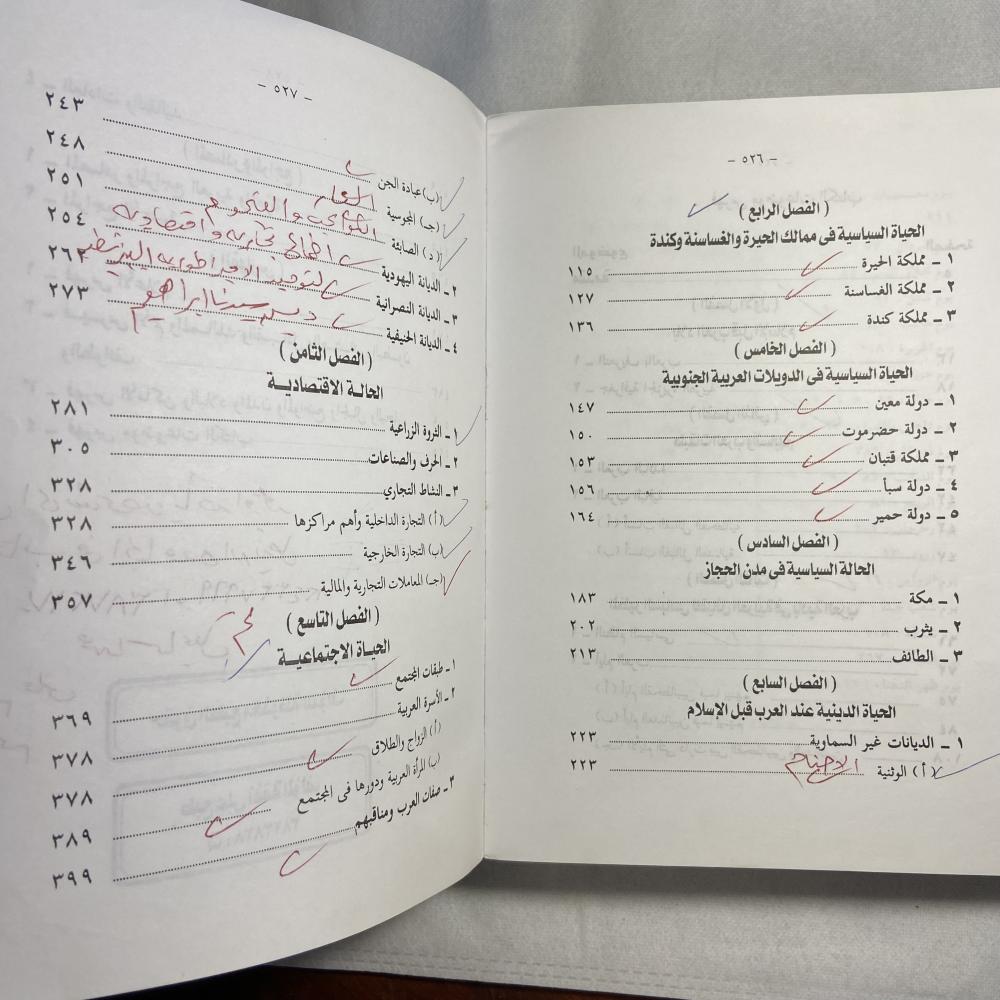 - ٥٢٦ -
( الفصل الرابع )
الحياة السياسية فى ممالك الحيرة والغساسنة وكندة
١ ـ مملكة الحيرة ........ ١١٥
٢ ـ مملكة الغساسنة ........ ١٢٧
٣ ـ مملكة كندة ........ ١٣٦
( الفصل الخامس )
الحياة السياسية فى الدويلات العربية الجنوبية
١ ـ دولة معين ........ ١٤٧
٢ ـ دولة حضرموت ........ ١٥٠
٣ ـ مملكة قتبان ........ ١٥٣
٤ ـ دولة سبأ ........ ١٥٦
٥ ـ دولة حمير ........ ١٦٤
( الفصل السادس )
الحالة السياسية فى مدن الحجاز
١ ـ مكة ........ ١٨٣
٢ ـ يثرب ........ ٢٠٢
٣ ـ الطائف ........ ٢١٣
( الفصل السابع )
الحياة الدينية عند العرب قبل الإسلام
١ ـ الديانات غير السماوية ........ ٢٢٣
(أ) الوثنية ........ ٢٢٣
الاصنام
- ٥٢٧ -
(ب) عبادة الجن ........ ٢٤٣
(جـ) المجوسية ........ ٢٤٨
(د) الصابئة ........ ٢٥١
الكواكب والنجوم
٢ ـ الديانة اليهودية ........ ٢٥٤
٣ ـ الديانة النصرانية ........ ٢٦٢
٤ ـ الديانة الحنيفية ........ ٢٧٣
دين سيدنا ابراهيم
( الفصل الثامن )
الحالة الاقتصادية
١ ـ الثروة الزراعية ........ ٢٨١
٢ ـ الحرف والصناعات ........ ٣٠٥
٣ ـ النشاط التجاري ........ ٣٢٨
(أ) التجارة الداخلية وأهم مراكزها ........ ٣٢٨
(ب) التجارة الخارجية ........ ٣٤٦
(جـ) المعاملات التجارية والمالية ........ ٣٥٧
( الفصل التاسع )
الحياة الاجتماعية
١ ـ طبقات المجتمع ........ ٣٦٩
٢ ـ الأسرة العربية ........ ٣٧٨
(أ) الزواج والطلاق ........ ٣٧٨
(ب) المرأة العربية ودورها فى المجتمع ........ ٣٨٩
٣ ـ صفات العرب ومناقبهم ........ ٣٩٩